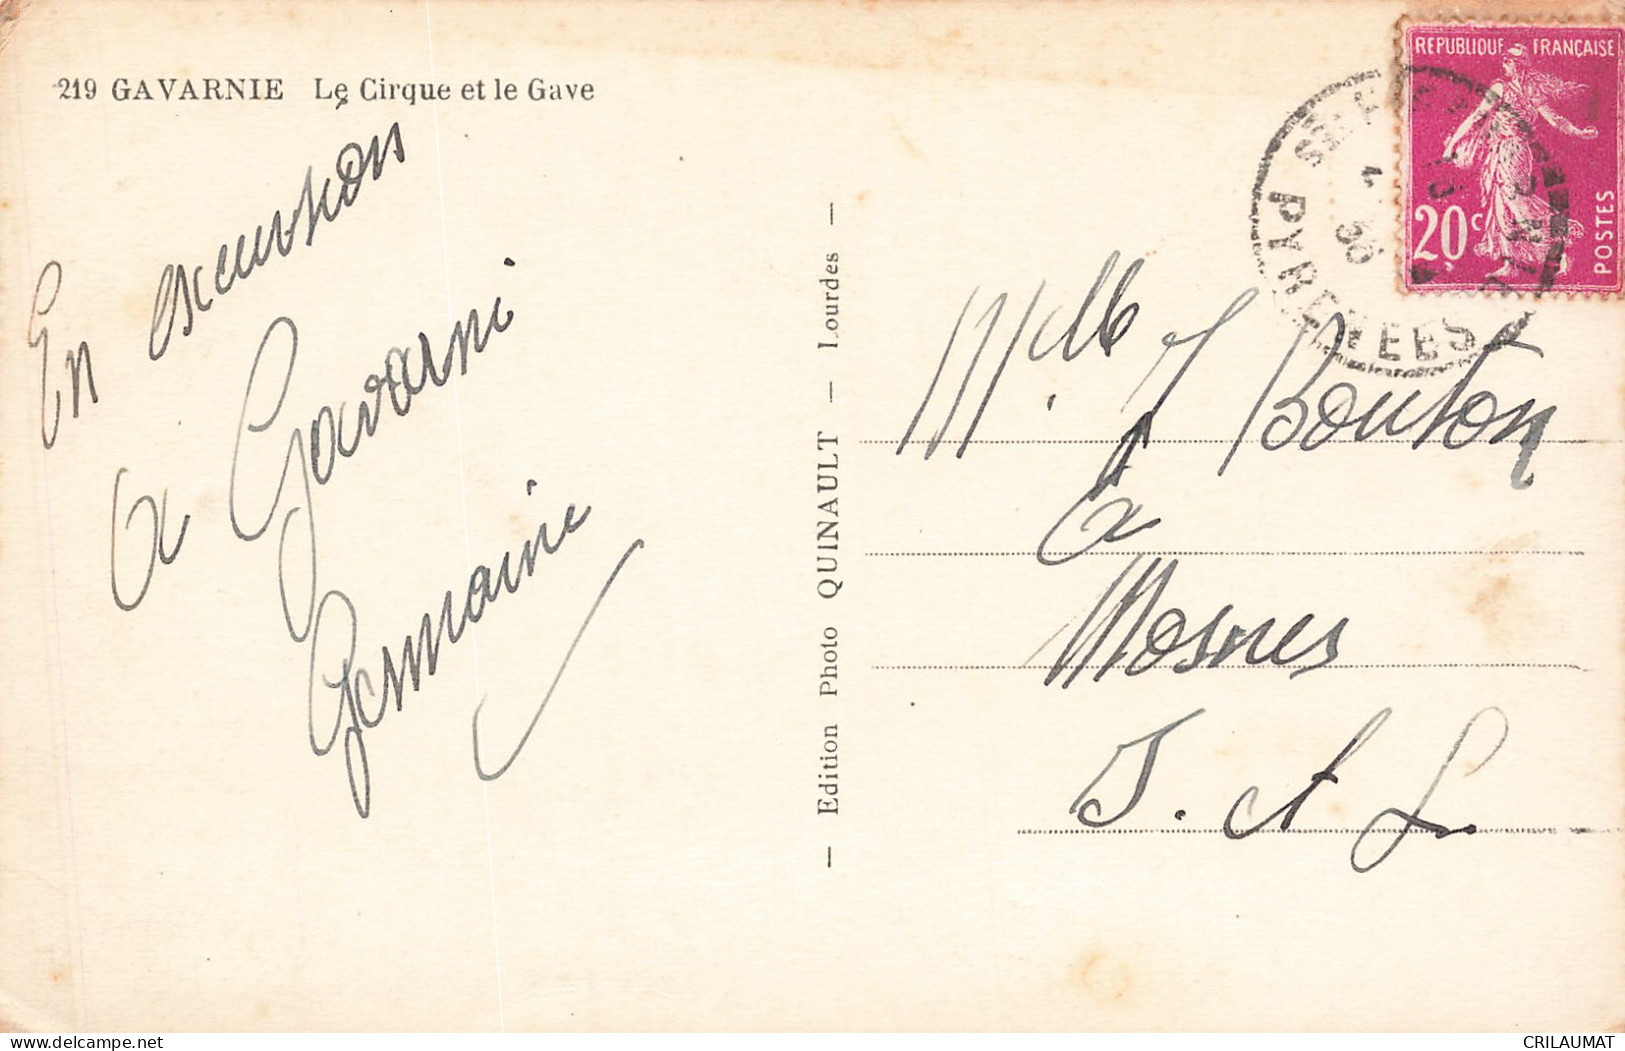 219 GAVARNIE Le Cirque et le Gave
En excursion
a Gavarni
Germaine
Edition Photo QUINAULT — Lourdes
REPUBLIQUE FRANÇAISE
20c
POSTES
PYRENEES
Mlle J Bouton
à
Mosnes
I. et L
www.delcampe.net
CRILAUMAT